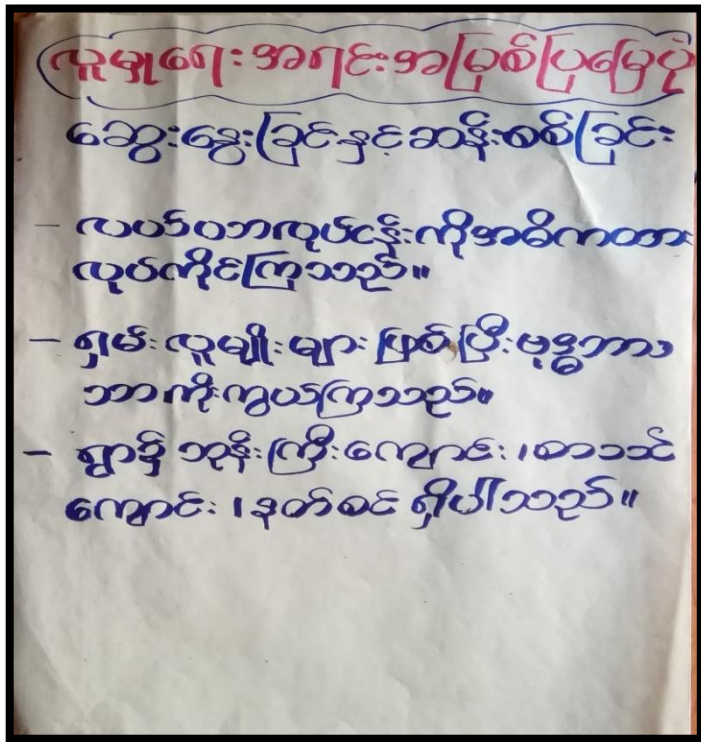 လူမှုရေးအရင်းအမြစ်ပြမြေပုံ
ဆွေးနွေးခြင်နှင့်ဆန်းစစ်ခြင်း
- လယ်ယာလုပ်ငန်းကိုအဓိကထား
လုပ်ကိုင်ကြသည်။
- ရှမ်းလူမျိုးများဖြစ်ပြီးဗုဒ္ဓဘာသာ
ဘာကိုးကွယ်ကြသည်။
- ရွာ၌ ဘုန်းကြီးကျောင်း၊စာသင်
ကျောင်း၊နတ်စင် ရှိပါသည်။